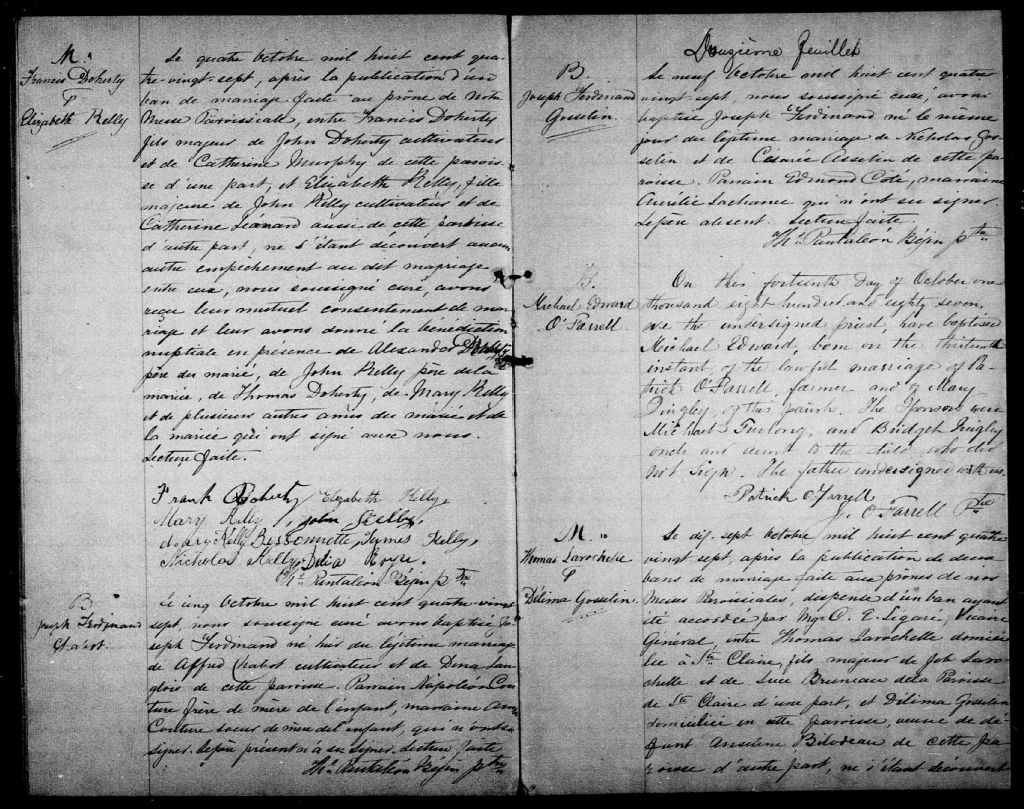 M.
Francis Doherty
&
Elizabeth Kelly
Le quatre Octobre mil huit cent qua-
tre-vingt-sept, après la publication d'un
ban de mariage faite au prône de notre
Messe Paroissiale, entre Francis Doherty
fils majeur de John Doherty cultivateur
et de Catherine Murphy de cette parois-
se d'une part, et Elizabeth Kelly, fille
majeure de John Kelly cultivateur et de
Catherine Léonard aussi de cette paroisse
d'autre part, ne s'étant découvert aucun
autre empêchement au dit mariage
entre eux, nous soussigné curé, avons
reçu leur mutuel consentement de ma-
riage et leur avons donné la bénédiction
nuptiale en présence de Alexander
père du marié, de John Kelly père de la
mariée, de Thomas Doherty, de Mary Kelly
et de plusieurs autres amis du marié et de
la mariée qui ont signé avec nous.
Lecture faite.
Frank Doherty, Elizabeth Kelly,
Mary Kelly, John Kelly,
Mary Kelly Bissonnette, Kelly,
Nicholas Kelly, Delia
Ths Pantaléon Bégin Ptre
B
Joseph Ferdinand
Chabot.
Le cinq Octobre mil huit cent quatre-vingt
sept, nous soussigné curé avons baptisé Jo-
seph Ferdinand né hier du légitime mariage
de Alfred Chabot cultivateur et de Dina Lan-
glois de cette paroisse. Parrain Napoléon Cou-
ture frère de mère de l'enfant, marraine
Couture soeur de mère de l'enfant, qui n'ont su
signer. Le père présent n'a su signer. Lecture faite
Ths Pantaléon Bégin Ptre
Douzième feuillet
B.
Joseph Ferdinand
Gosselin.
Le neuf Octobre mil huit cent quatre
vingt sept, nous soussigné curé, avons
baptisé Joseph Ferdinand né le même
jour du légitime mariage de Nicholas Gos-
selin et de Césarie Asselin de cette pa-
roisse. Parrain Edmond Coté, marraine
Aurélie Lachance qui n'ont su signer.
Le père absent. Lecture faite.
Ths Pantaléon Bégin Ptre
B.
Michael Edward
O'Farrell
On this forteenth Day of October one
thousand eight hundred and eighty seven,
We the undersigned priest, have baptised
Michael Edward, born on the thirteenth
instant, of the lawful marriage of Pa-
trick O'Farrell farmer and of Mary
Quigley, of this parish. The Sponsors were
Michael Furlong, and Bridget Quigley
oncle and aunt to the child, who did
not sign. The father undersigned with us.
Patrick O'Farrell
J. O'Farrell Ptre
M.
Thomas Larochelle
&
Délima Gosselin.
Le dix-sept Octobre mil huit cent quatre
vingt sept, après la publication de deux
bans de mariage faite aux prônes de nos
Messes Paroissiales, dispense d'un ban ayant
été accordée par Mgr C. E. Légaré, Vicaire
Général, entre Thomas Larochelle domici-
lié à Ste Claire, fils majeur de Job Laro-
chelle et de Luce Bruneau de la Paroisse
de Ste Claire d'une part, et Délima Gosselin
domiciliée en cette paroisse, veuve de dé-
funt Anselme Bilodeau de cette pa-
roisse d'autre part, ne s'étant découvert